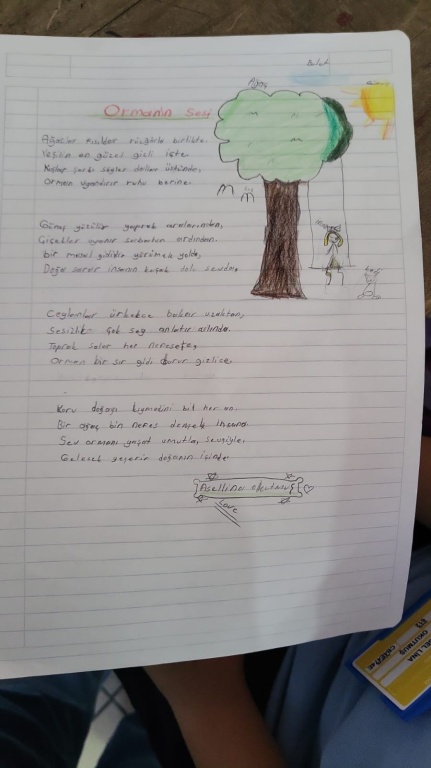 Bulut
Ağaç
Güneş
Ormanın Sesi
Ağaçlar fısıldar rüzgarla birlikte.
Yeşilin en güzel gizli işte
Kuşlar şarkı söyler dallar üstünde,
Orman uyandırır ruhu derine.
Kuş
Güneş süzülür yaprak aralarından,
Çiçekler uyanır sabahın ardından.
bir masal gidilir yürümek yolda,
Doğa sarar insanın kucak dolu sevda.
Ceylanlar ürkekçe bakar uzaktan,
Sessizlik çok şey anlatır aslında.
Toprak solar her nefeste,
Orman bir sır gidi durur gizlice.
Koru doğayı kıymetini bil her an.
Bir ağaç bin nefes demek insana.
Sev ormanı yaşat umutla, sevgiyle.
Gelecek yeşerir doğanın içinde
Asellina okutmuş
Love
OKUTMUŞ